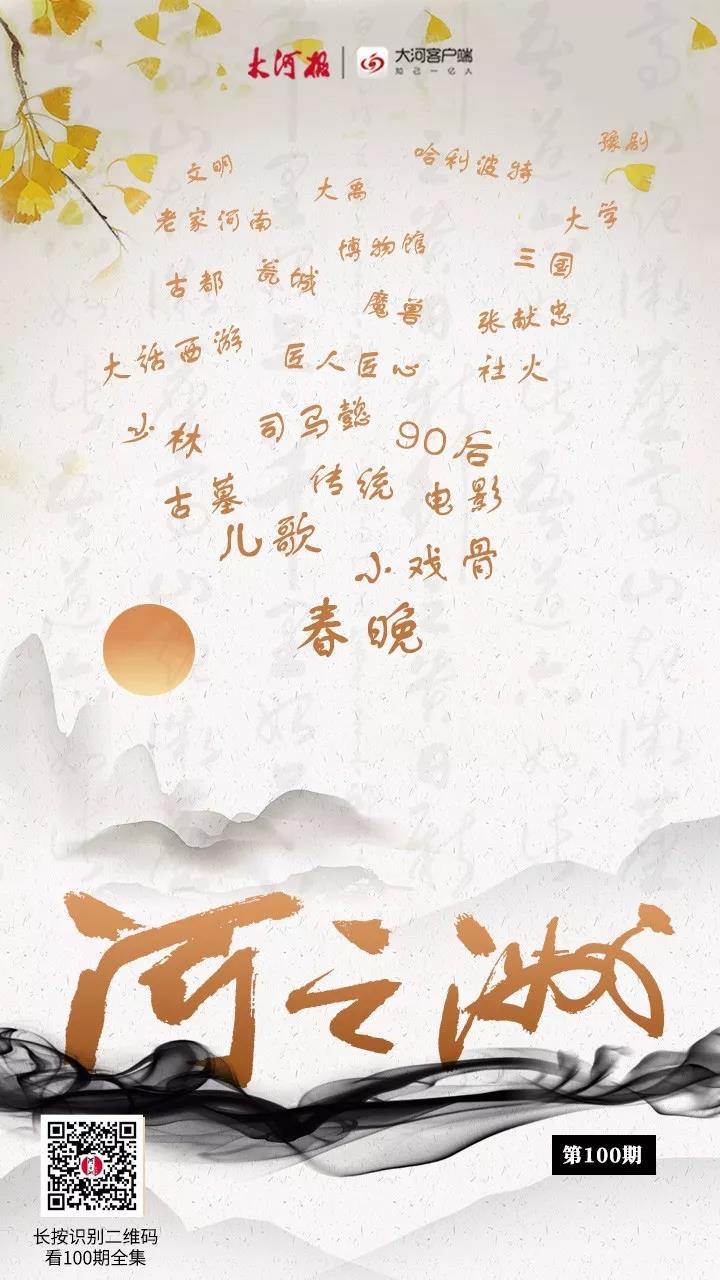 大河报 大河客户端
知己一亿人
豫剧
文明 大禹 哈利波特
老家河南 博物馆 大学
古都 瓮城 三国
魔兽 张献忠
大话西游 匠人匠心 社火
少林 司马懿 90后
古墓 传统 电影
儿歌 小戏骨
春晚
河之洲
第100期
长按识别二维码
看100期全集